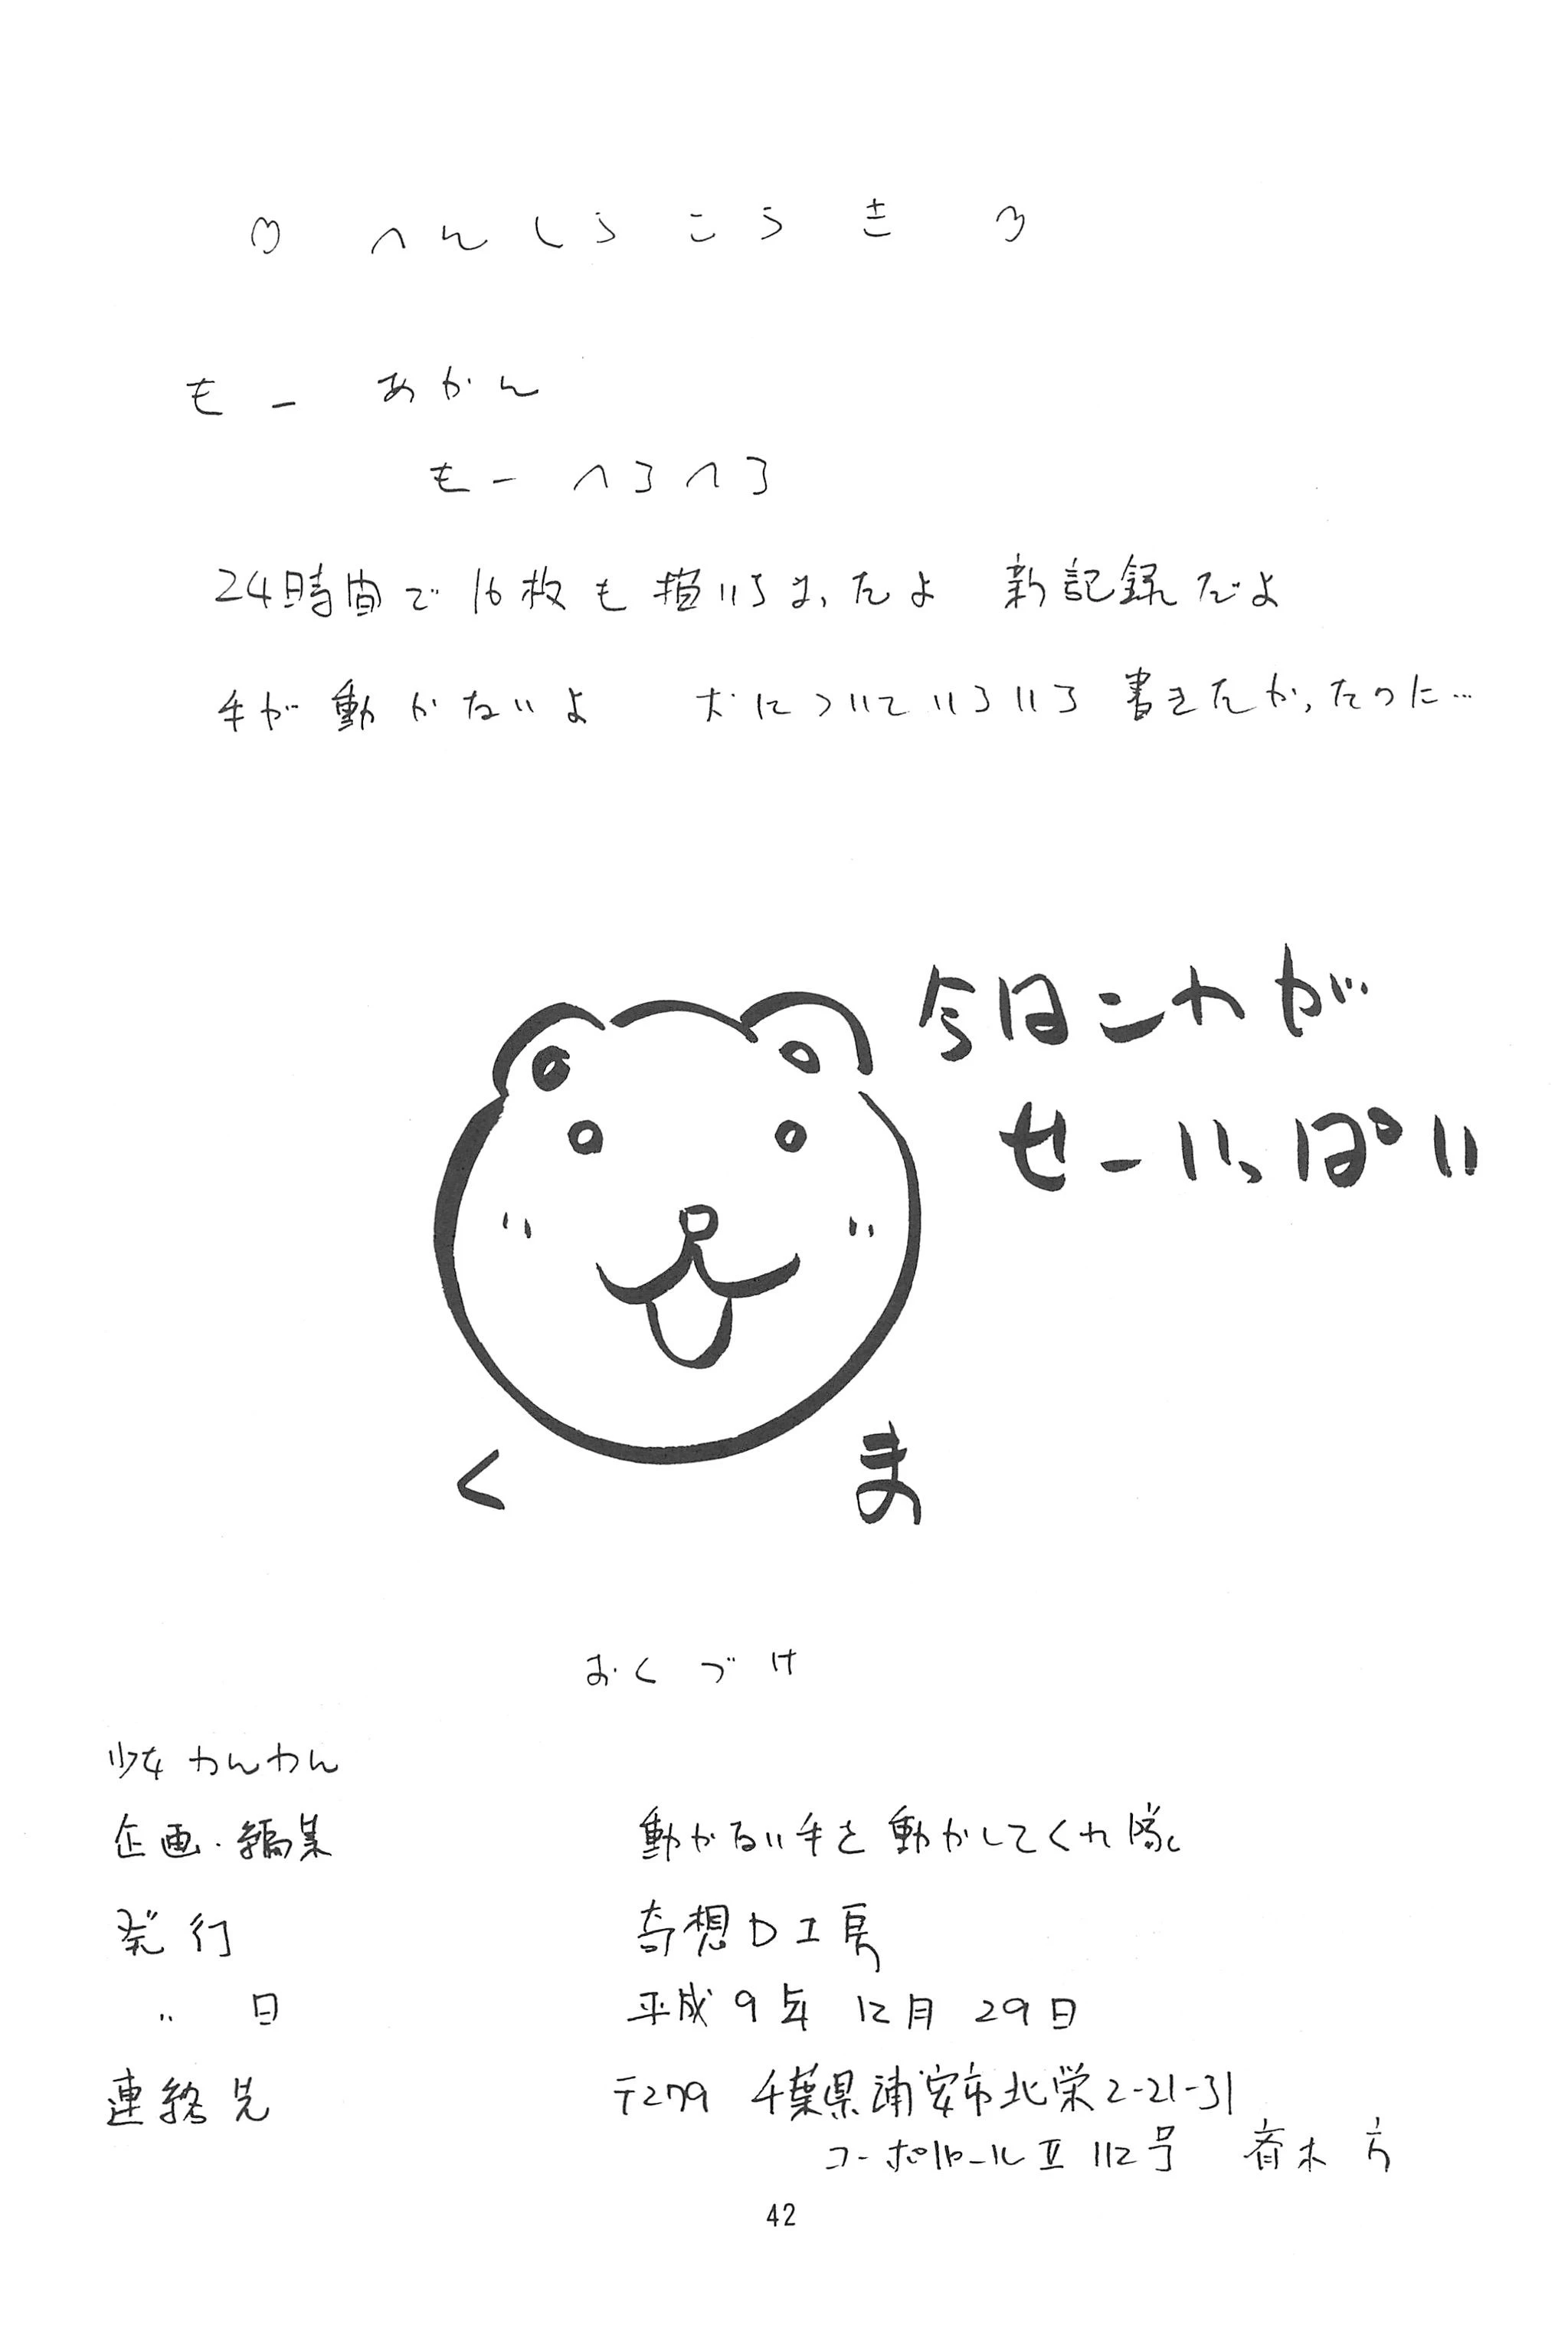 ♡ へんしうこうき ♡
もー あかん
もー へろへろ
24時間で16枚も描いちまったよ 新記録だよ
手が動かないよ 犬についていろいろ書きたかったのに…
今はこれが
せーいっぱい
くま
おくづけ
少女わんわん
企画・編集 動かない手を動かしてくれ隊
発行 奇想D工房
〃 日 平成9年 12月 29日
連絡先 〒279 千葉県浦安市北栄2-21-31
コーポ Ⅱ 112号 方
42